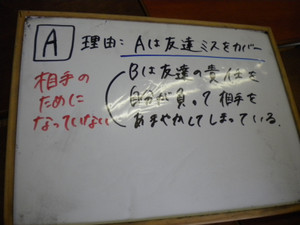 A 理由: Aは友達ミスをカバー
Bは友達の責任を
自分が負って相手を
あまやかしてしまっている.
相手の
ために
なっていない